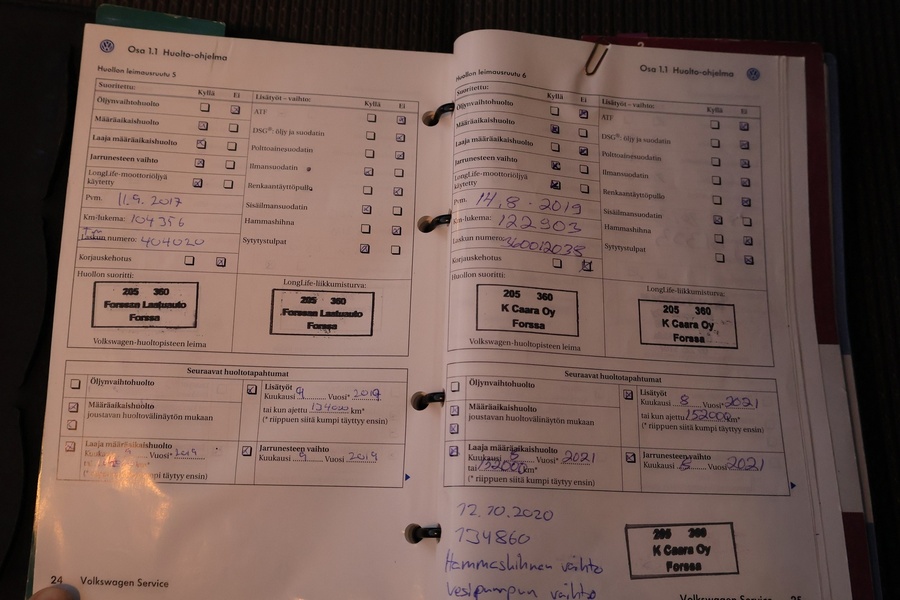 Osa 1.1 Huolto-ohjelma
Huollon leimausruutu 5
Suoritettu: Kyllä Ei
Öljynvaihtohuolto
Määräaikaishuolto
Laaja määräaikaishuolto
Jarrunesteen vaihto
LongLife-moottoriöljyä
käytetty
Pvm. 11.9.2017
Km-lukema: 104356
Laskun numero: 404020
Korjauskehotus
Huollon suoritti:
205 360
Forssan Laatuauto
Forssa
Volkswagen-huoltopisteen leima
Lisätyöt – vaihto: Kyllä Ei
ATF
DSG®: öljy ja suodatin
Polttoainesuodatin
Ilmansuodatin
Renkaantäyttöpullo
Sisäilmansuodatin
Hammashihna
Sytytystulpat
LongLife-liikkumisturva:
205 360
Forssan Laatuauto
Forssa
Seuraavat huoltotapahtumat
Öljynvaihtohuolto
Määräaikaishuolto
joustavan huoltovälinäytön mukaan
Laaja määräaikaishuolto
Kuukausi 9 Vuosi* 2019
(* riippuen siitä kumpi täyttyy ensin)
Lisätyöt
Kuukausi 9 Vuosi* 2019
tai kun ajettu 134000 km*
(* riippuen siitä kumpi täyttyy ensin)
Jarrunesteen vaihto
Kuukausi 9 Vuosi 2019
24 Volkswagen Service
Osa 1.1 Huolto-ohjelma
Huollon leimausruutu 6
Suoritettu: Kyllä Ei
Öljynvaihtohuolto
Määräaikaishuolto
Laaja määräaikaishuolto
Jarrunesteen vaihto
LongLife-moottoriöljyä
käytetty
Pvm. 14.8.2019
Km-lukema: 122903
Laskun numero: 360012038
Korjauskehotus
Huollon suoritti:
205 360
K Caara Oy
Forssa
Volkswagen-huoltopisteen leima
Lisätyöt – vaihto: Kyllä Ei
ATF
DSG®: öljy ja suodatin
Polttoainesuodatin
Ilmansuodatin
Renkaantäyttöpullo
Sisäilmansuodatin
Hammashihna
Sytytystulpat
LongLife-liikkumisturva:
205 360
K Caara Oy
Forssa
Seuraavat huoltotapahtumat
Öljynvaihtohuolto
Määräaikaishuolto
joustavan huoltovälinäytön mukaan
Laaja määräaikaishuolto
Kuukausi 8 Vuosi* 2021
tai 152000 km*
(* riippuen siitä kumpi täyttyy ensin)
Lisätyöt
Kuukausi 8 Vuosi* 2021
tai kun ajettu 152000 km*
(* riippuen siitä kumpi täyttyy ensin)
Jarrunesteen vaihto
Kuukausi 8 Vuosi 2021
12.10.2020
134860
Hammashihnan vaihto
Vesipumpun vaihto
205 360
K Caara Oy
Forssa
Volkswagen Service 25